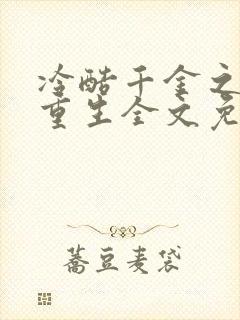 冷酷千金之
重生全文免
蕎豆麦袋